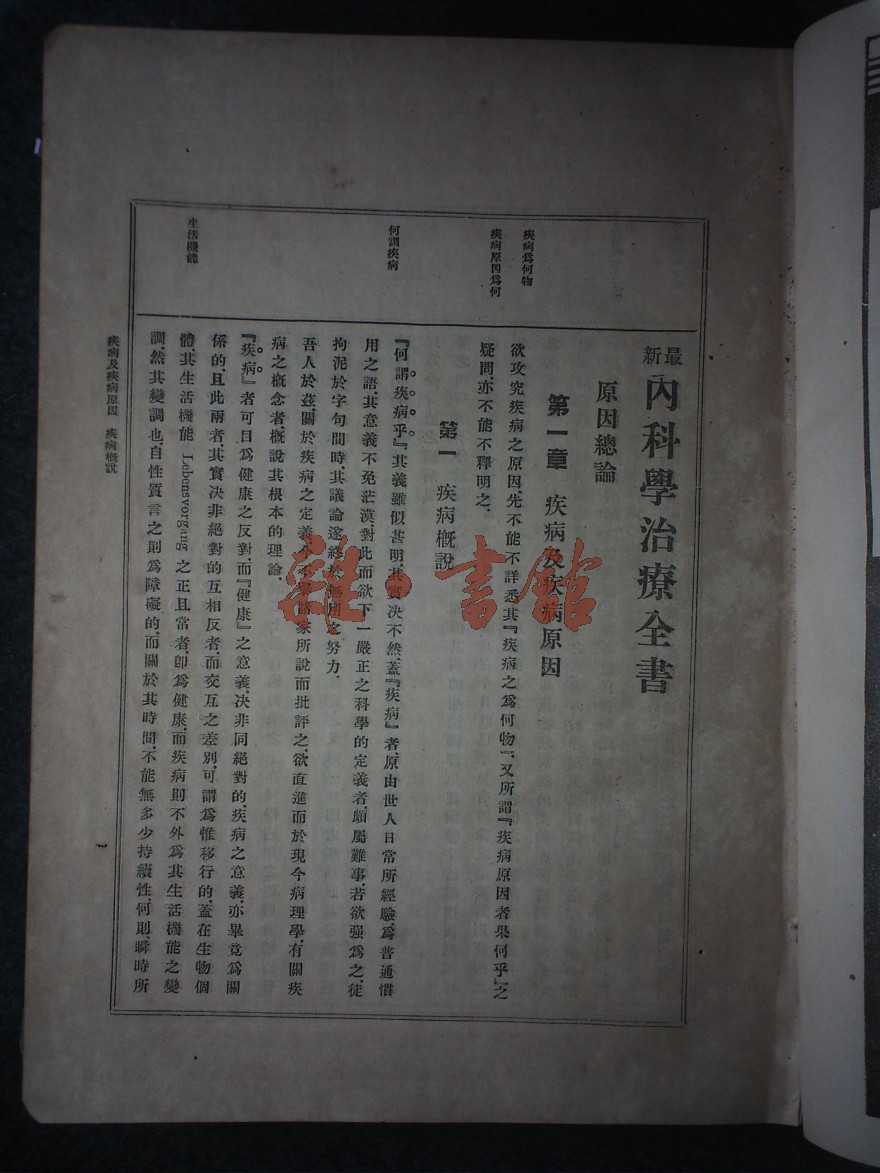 最新內科學治療全書
原因總論
第一章　疾病及疾病原因
疾病爲何物
疾病原因爲何
欲攻究疾病之原因、先不能不詳悉其『疾病之爲何物』、又所謂『疾病原因者果何乎』之
疑問、亦不能不釋明之、
第一　疾病概說
何謂疾病
『何謂疾病乎』、其義雖似甚明、其實決不然、蓋『疾病』者、原由世人日常所經驗、爲普通慣
用之語、其意義不免茫漠、對此而欲下一嚴正之科學的定義者、頗屬難事、若欲强爲之、徒
拘泥於字句間時、其議論遂終於無用之努力、
吾人於茲、關於疾病之定義、今不舉諸家所說而批評之、欲直進而於現今病理學、有關疾
病之概念者、概說其根本的理論、
『疾病』者可目爲健康之反對、而『健康』之意義、決非同絕對的、疾病之意義、亦畢竟爲關
係的、且此兩者、其實決非絕對的互相反者、而交互之差別、可謂爲惟移行的、蓋在生物個
生活機能
體、其生活機能 Lebensvorgang 之正且常者、卽爲健康、而疾病則不外爲其生活機能之變
調、然其變調也、自性質言之則爲障礙的、而關於其時間、不能無多少持續性、何則、瞬時所
疾病及疾病原因　疾病概說
一
雜·書館